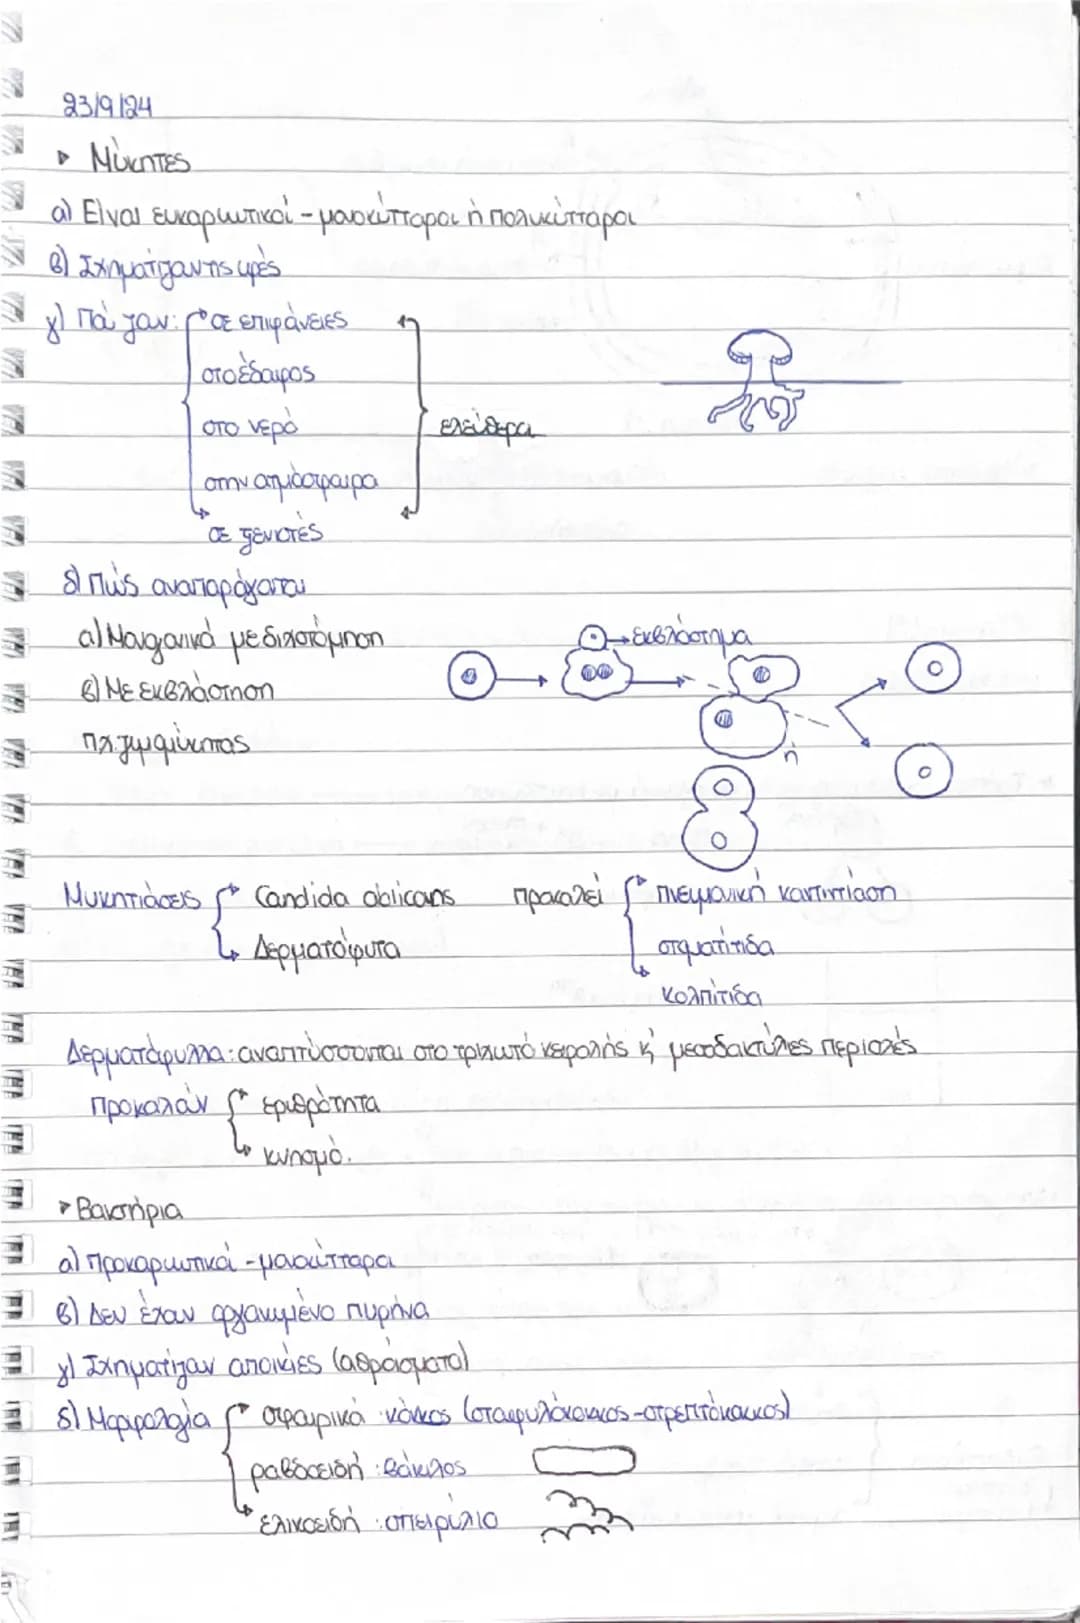 23/9/24
▸ Μύκητες
α) Είναι ευκαρυωτικοί - μονοκύτταροι ή πολυκύτταροι
β) Σχηματίζουν τις υφές
γ) Πού ζουν: σε επιφάνειες
στο έδαφος
στο νερό
ελεύθερα
στην ατμόσφαιρα
σε ξενιστές
δ) Πώς αναπαράγονται
α) Μονογονικά με διχοτόμηση
→ εκβλάστημα
β) Με εκβλάστηση
πχ ζυμομύκητας
ή
Μυκητιάσεις Candida ablicans προκαλεί πνευμονική καντιντίαση
Δερματόφυτα στοματίτιδα
κολπίτιδα
Δερματόφυλλα: αναπτύσσονται στο τριχωτό κεφαλής κ' μεσοδακτύλιες περιοχές
Προκαλούν ερυθρότητα
κνησμό.
▸ Βακτήρια
α) Προκαρυωτικά - μονοκύτταρα
β) Δεν έχουν οργανωμένο πυρήνα
γ) Σχηματίζουν αποικίες (αθροίσματα)
δ) Μορφολογία σφαιρικά: κόκκος (σταφυλόκοκκος - στρεπτόκοκκος)
ραβδοειδή: βάκιλος
ελικοειδή: σπειρύλιο